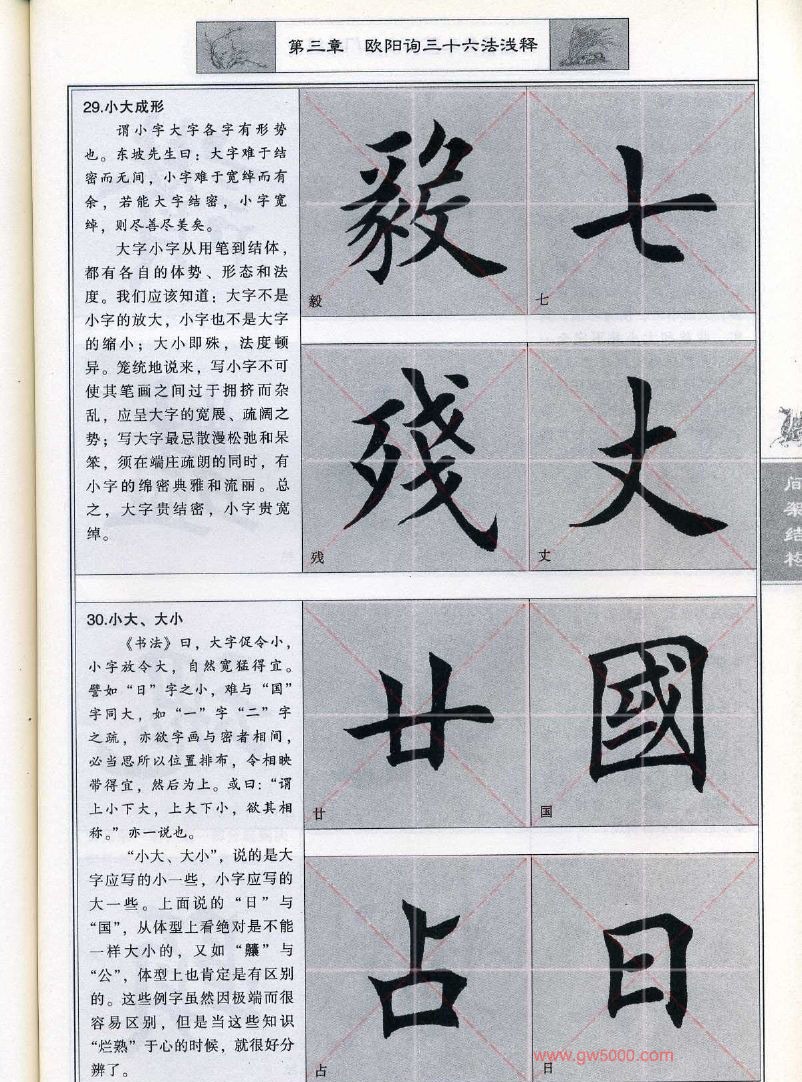 第三章 欧阳询三十六法浅释
29.小大成形
谓小字大字各字有形势
也。东坡先生曰：大字难于结
密而无间，小字难于宽绰而有
余，若能大字结密，小字宽
绰，则尽善尽美矣。
大字小字从用笔到结体，
都有各自的体势、形态和法
度。我们应该知道：大字不是
小字的放大，小字也不是大字
的缩小；大小即殊，法度顿
异。笼统地说来，写小字不可
使其笔画之间过于拥挤而杂
乱，应呈大字的宽展、疏阔之
势；写大字最忌散漫松弛和呆
笨，须在端庄疏朗的同时，有
小字的绵密典雅和流丽。总
之，大字贵结密，小字贵宽
绰。
毅 七
毅 七
殘 丈
残 丈
间架结构
30.小大、大小
《书法》曰，大字促令小，
小字放令大，自然宽猛得宜。
譬如“日”字之小，难与“国”
字同大，如“一”字“二”字
之疏，亦欲字画与密者相间，
必当思所以位置排布，令相映
带得宜，然后为上。或曰：“谓
上小下大，上大下小，欲其相
称。”亦一说也。
“小大、大小”，说的是大
字应写的小一些，小字应写的
大一些。上面说的“日”与
“国”，从体型上看绝对是不能
一样大小的，又如“ ”与
“公”，体型上也肯定是有区别
的。这些例字虽然因极端而很
容易区别，但是当这些知识
“烂熟”于心的时候，就很好分
辨了。
廿 國
廿 国
占 日
占 日
www.gw5000.com